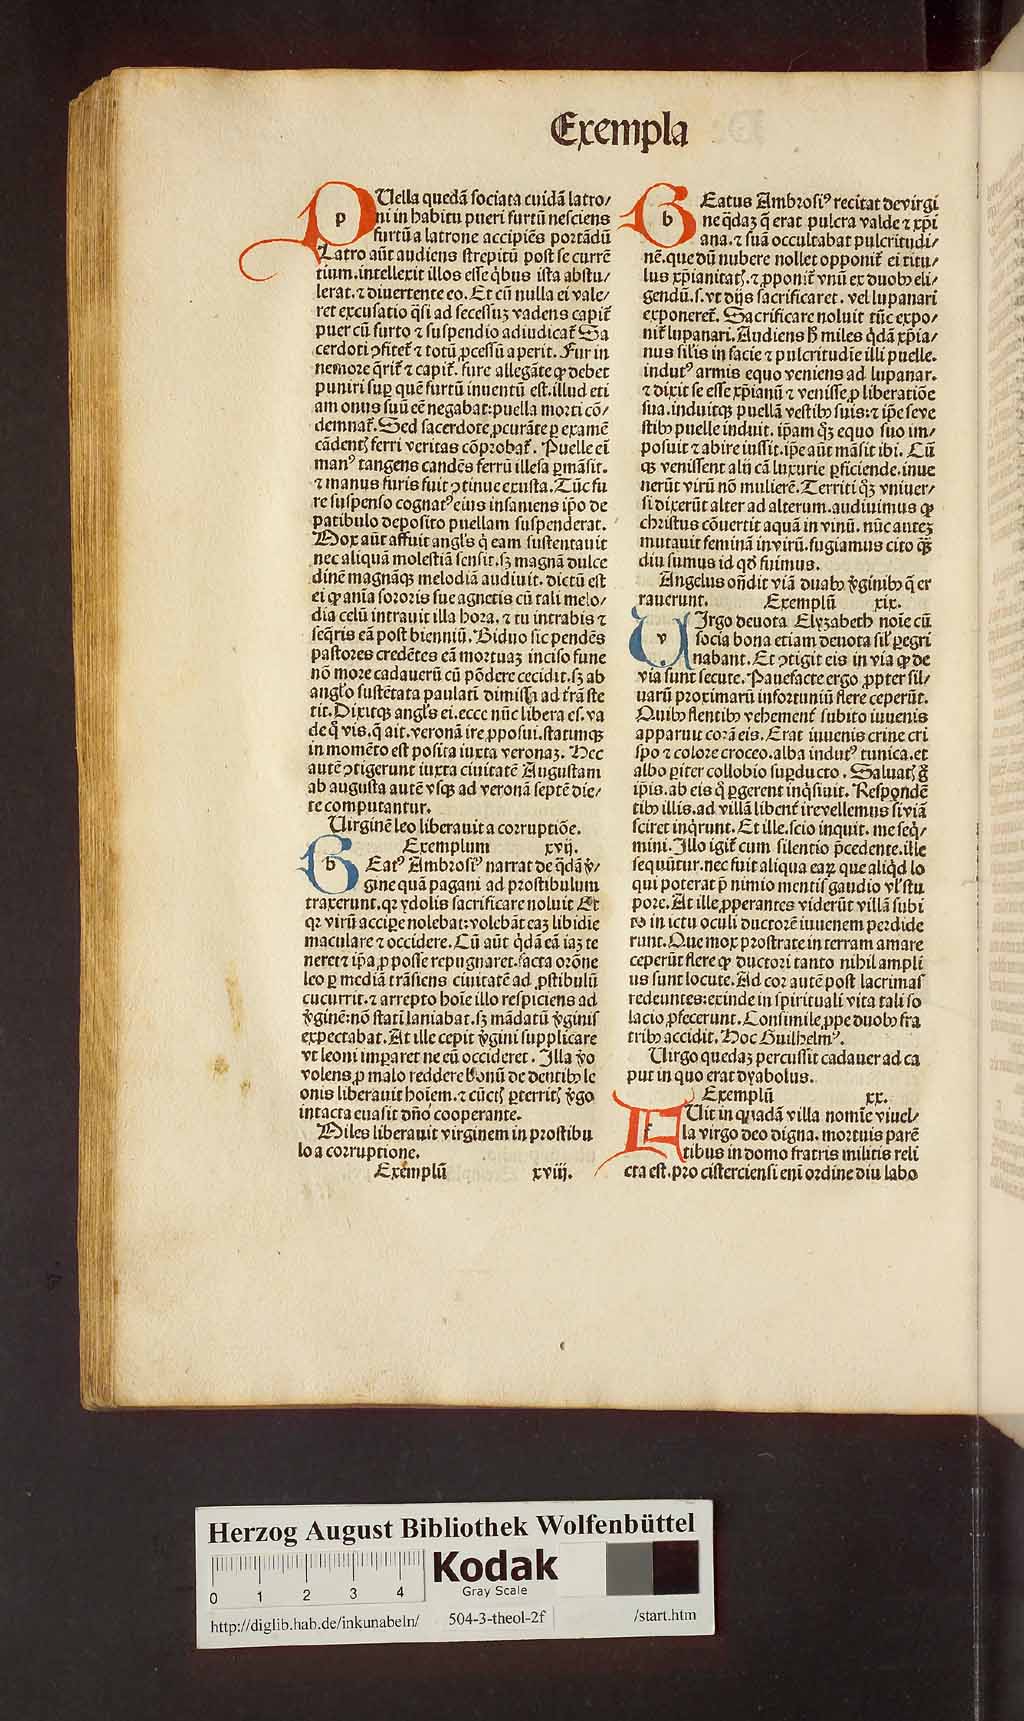 Exempla
PUella quedā sociata cuidā latro/
ni in habitu pueri furtū nesciens
furtū a latrone accipiēs portādū
Latro aūt audiens strepitū post se currē
tium.intellexit illos esse q̄bus ista abstu/
lerat.⁊ diuertente eo. Et cū nulla ei vale/
ret excusatio q̄si ad secessuꝫ vadens capit̄
puer cū furto ⁊ suspendio adiudicat̄ Sa
cerdoti ꝯfitet̄ ⁊ totū ꝓcessū aperit. Fur in
nemore q̄rit̄ ⁊ capit̄. fure allegāte ꝙ debet
puniri suꝑ quē furtū inuentū est.illud eti
am onus suū eē negabat:puella morti cō/
demnat̄. Sed sacerdote ꝓcurāte ꝑ examē
cādentꝭ ferri veritas cōprobat̄. Puelle eī
manꝰ tangens candēs ferrū illesa ꝑmāsit.
⁊ manus furis fuit ꝯtinue exusta. Tūc fu
re suspenso cognatꝰ eius insaniens ip̄o de
patibulo deposito puellam suspenderat.
Mox aūt affuit angl̄s q̄ eam sustentauit
nec aliquā molestiā sensit.sꝫ magnā dulce
dinē magnāqꝫ melodiā audiuit. dictū est
ei ꝙ anīa sororis sue agnetis cū tali melo/
dia celū intrauit illa hora. ⁊ tu intrabis ⁊
seq̄ris eā post bienniū. Biduo sic pendēs
pastores credētes eā mortuaꝫ inciso fune
nō more cadauerū cū pōdere cecidit.sꝫ ab
angl̄o sustētata paulati dimissa ad t̄rā ste
tit. Dixitqꝫ angl̄s ei.ecce nūc libera es.va
de q̄ vis.q̄ ait.veronā ire ꝓposui.statimqꝫ
in momēto est posita iuxta veronaꝫ. Hec
autē ꝯtigerunt iuxta ciuitatē Augustam
ab augusta autē vsqꝫ ad veronā septē die/
te computantur.
Virginē leo liberauit a corruptiōe.
Exemplum xvij.
BEatꝰ Ambrosiꝰ narrat de q̄dā v̄/
gine quā pagani ad prostibulum
traxerunt.qꝛ ydolis sacrificare noluit Et
qꝛ virū accipe nolebat:volebāt eaꝫ libidīe
maculare ⁊ occidere. Cū aūt q̄dā eā iaꝫ te
neret ⁊ ip̄a ꝓ posse repugnaret.facta orōne
leo ꝑ mediā trāsiens ciuitatē ad ꝓstibulū
cucurrit.⁊ arrepto hoīe illo respiciens ad
v̄ginē:nō statī laniabat.sꝫ mādatū v̄ginis
expectabat. At ille cepit v̄gini supplicare
vt leoni imꝑaret ne eū occideret. Illa v̄o
volens ꝓ malo reddere bonū de dentibꝰ le
onis liberauit hoīem.⁊ cūctꝭ ꝑterritꝭ v̄go
intacta euasit dn̄o cooperante.
Miles liberauit virginem in prostibu
lo a corruptione.
Exemplū xviij.
BEatus Ambrosiꝰ recitat de virgi
ne q̄daꝫ q̄ erat pulcra valde ⁊ xp̄i
ana.⁊ suā occultabat pulcritudi/
nē.que dū nubere nollet opponit̄ ei titu/
lus xp̄ianitatꝭ.⁊ ꝓponit̄ vnū ex duobꝰ eli/
gendū.s.vt dijs sacrificaret. vel lupanari
exponeret̄. Sacrificare noluit tūc expo/
nit̄ lupanari. Audiens h̄ miles q̄dā xp̄ia/
nus sil̄is in facie ⁊ pulcritudīe illi puelle.
indutꝰ armis equo veniens ad lupanar.
⁊ dixit se esse xp̄ianū ⁊ venisse ꝓ liberatiōe
sua.induitqꝫ puellā vestibꝰ suis:⁊ ip̄e se ve
stibꝰ puelle induit. ip̄am q̄ꝫ equo suo im/
posuit ⁊ abire iussit.ip̄e aūt māsit ibi. Cū
qꝫ venissent alij cā luxurie ꝑficiende.inue
nerūt virū nō mulierē. Territi q̄ꝫ vniuer/
si dixerūt alter ad alterum.audiuimus ꝙ
christus cōuertit aquā in vinū. nūc auteꝫ
mutauit feminā in virū.fugiamus cito q̄ꝫ
diu sumus id qd̄ fuimus.
Angelus on̄dit viā duabꝰ v̄ginibꝰ q̄ er
rauerunt. Exemplū xix.
VIrgo deuota Elyzabeth noīe cū
socia bona etiam deuota sil̄ ꝑegri
nabant. Et ꝯtigit eis in via ꝙ de
via sunt secute. Pauefacte ergo ꝓpter sil/
uarū proximarū infortuniū flere ceperūt.
Quibꝰ flentibꝰ vehement̄ subito iuuenis
apparuit corā eis. Erat iuuenis crine cri
spo ⁊ colore croceo.alba indutꝰ tunica.et
albo ꝑiter collobio suꝑducto. Saluatꝭ ḡ
ip̄is.ab eis q̄ ꝑgerent inq̄siuit. Respondē
tibꝰ illis.ad villā libent̄ ire vellemus si viā
sciret inq̄runt. Et ille.scio inquit. me seq̄/
mini. Illo igit̄ cum silentio p̄cedente.ille
sequūtur.nec fuit aliqua eaꝝ que aliq̄d lo
qui poterat p̄ nimio mentis gaudio vl̄ stu
pore. At ille ꝓperantes viderūt villā subi
to in ictu oculi ductorē iuuenem perdide
runt. Que mox prostrate in terram amare
ceperūt flere ꝙ ductori tanto nihil ampli
us sunt locute. Ad cor autē post lacrimas
redeuntes:exinde in spirituali vita tali so
lacio ꝓfecerunt. Consimile ꝓpe duobꝰ fra
tribꝰ accidit. Hoc Guilhelmꝰ.
Virgo quedaꝫ percussit cadauer ad ca
put in quo erat dyabolus.
Exemplū xx.
FUit in quadā villa nomīe viuel/
la virgo deo digna. mortuis parē
tibus in domo fratris militis reli
cta est.pro cisterciensi enī ordine diu labo
Herzog August Bibliothek Wolfenbüttel
Kodak
Gray Scale
0 1 2 3 4
http://diglib.hab.de/inkunabeln/ 504-3-theol-2f /start.htm